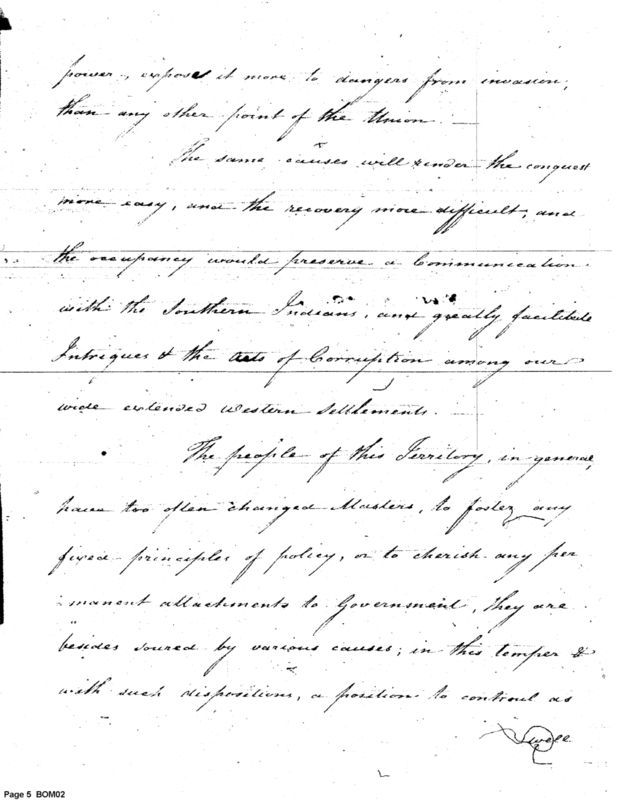 power, expose it more to dangers from invasion,
than any other point of the Union. —
The same causes will render the conquest
more easy, and the recovery more difficult, and
the occupancy would preserve a Communication
with the Southern Indians, and greatly facilitate
Intrigues & the acts of Corruption among our
wide extended western settlements.
The people of this Territory, in general,
have too often changed Masters, to foster any
fixed principles of policy, or to cherish any per
manent attachments to Government, they are
besides soured by various causes; in this temper &
with such dispositions, a position to controul as
well
Page 5 BOM02